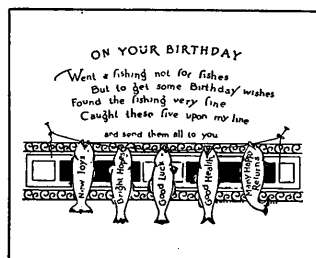 ON YOUR BIRTHDAY
Went a fishing not for fishes
But to get some Birthday wishes
Found the fishing very fine
Caught these five upon my line
and send them all to you
New Joys
Bright Hopes
Good Luck
Good Health
Many Happy
Returns